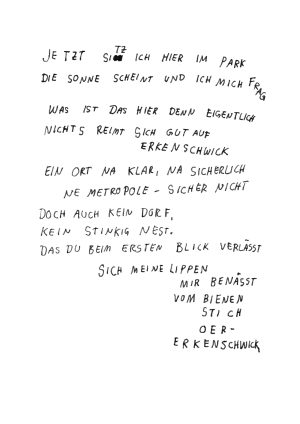 JETZT SITZ ICH HIER IM PARK
DIE SONNE SCHEINT UND ICH MICH FRAG
WAS IST DAS HIER DENN EIGENTLICH
NICHTS REIMT SICH GUT AUF
ERKENSCHWICK
EIN ORT NA KLAR, NA SICHERLICH
NE METROPOLE - SICHER NICHT
DOCH AUCH KEIN DORF,
KEIN STINKIG NEST.
DAS DU BEIM ERSTEN BLICK VERLÄSST
SICH MEINE LIPPEN
MIR BENÄSST
VOM BIENEN
STICH
OER-
ERKENSCHWICK